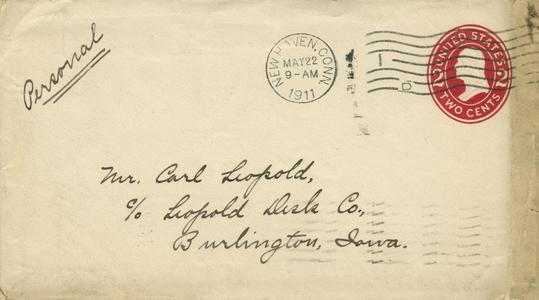 Personal
NEW HAVEN, CONN.
MAY 22
9-AM
1911
1
D
UNITED STATES
TWO CENTS
Mr. Carl Leopold,
c/o Leopold Desk Co.,
Burlington, Iowa.